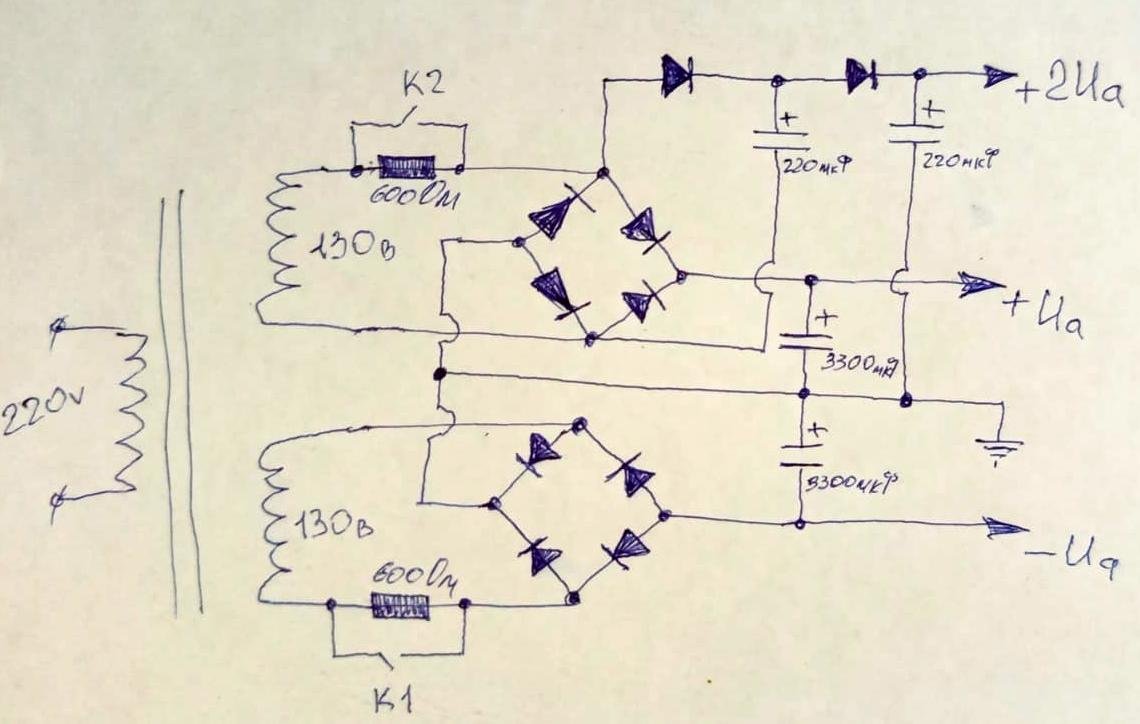 K2
+2Ua
600Ом
220мкФ
220мкФ
130в
+Ua
3300мкФ
220v
3300мкФ
130в
-Ua
600Ом
K1